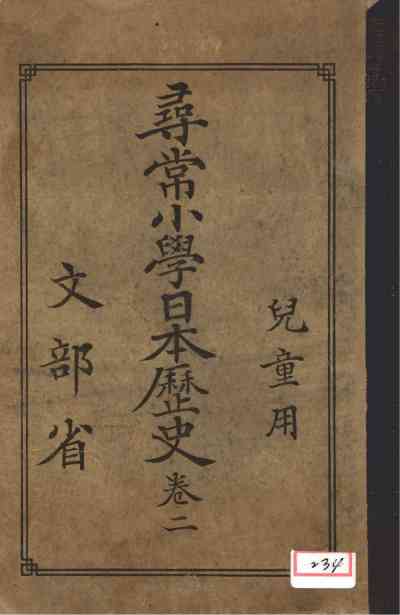 兒童用
尋常小學日本歷史卷二
文部省
234